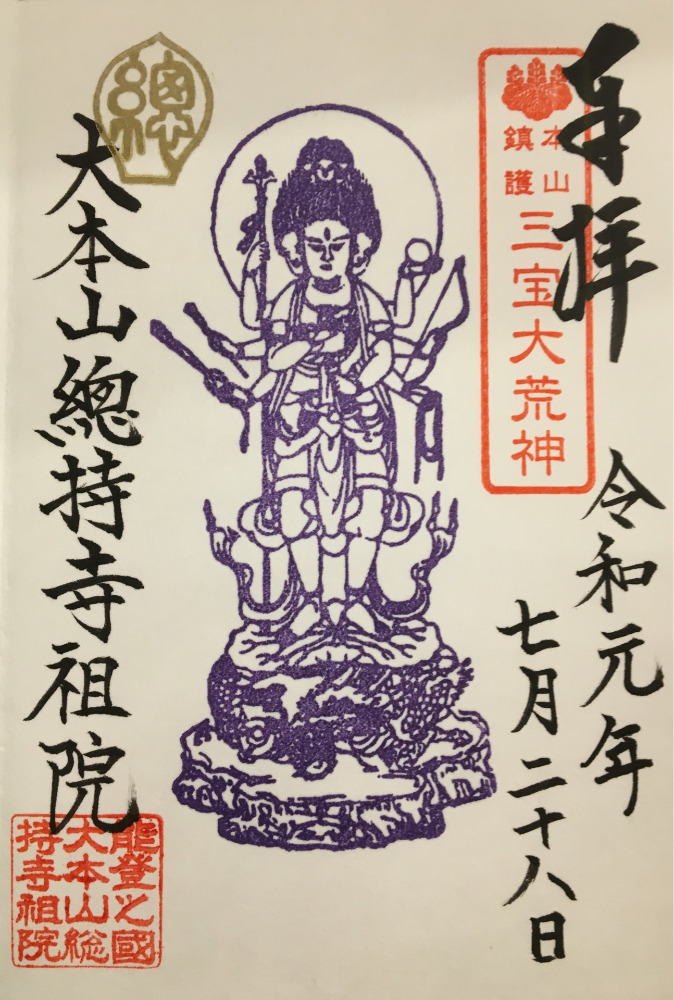 奉拝
本山
鎮護
三宝大荒神
令和元年
七月二十八日
總
大本山總持寺祖院
能登之國
大本山総
持寺祖院